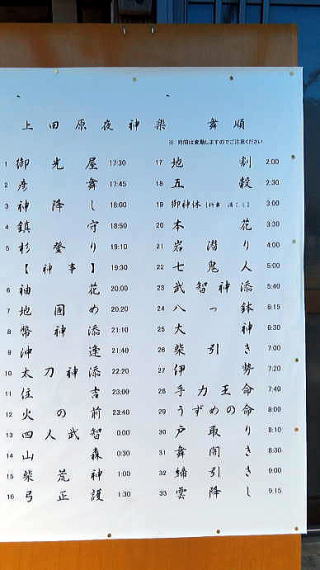 上田原夜神楽 舞順
※ 時間は変動しますのでご注意ください
1 御光屋 17:30
2 彦舞 17:45
3 神降し 18:00
4 鎮守 18:50
5 杉登り 19:10
【神事】 19:30
6 袖花 20.00
7 地固め 20.20
8 幣神添 21:10
9 沖逢 21:40
10 太刀神添 22:20
11 住吉 23:00
12 火の前 23:40
13 四人武智 0:00
14 山森 0:30
15 柴荒神 1:00
16 弓正護 1:30
17 地割 2:00
18 五穀 2:30
19 御神体 3:00
20 本花 3:30
21 岩潜り 4:00
22 七鬼人 5:00
23 武智神添 5:40
24 八つ鉢 6:15
25 大神 6:30
26 柴引き 7:00
27 伊勢 7:20
28 手力王命 7:40
29 うずめの命 8:00
30 戸取り 8:10
31 舞開き 8:30
32 締引き 9:00
33 雲降し 9:15